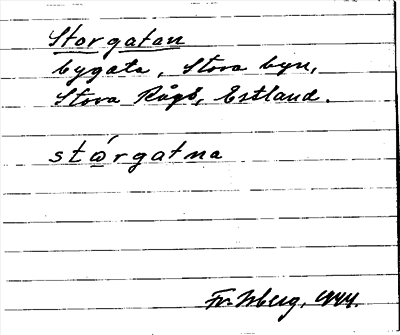 Storgatan
bygata, Stora byn,
Stora Rågö, Estland.
stǫ́rgatna
Fr. Isberg, 1944.